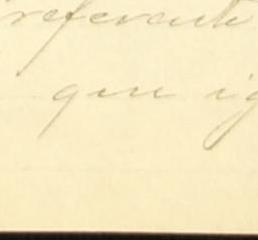 referente
que ig